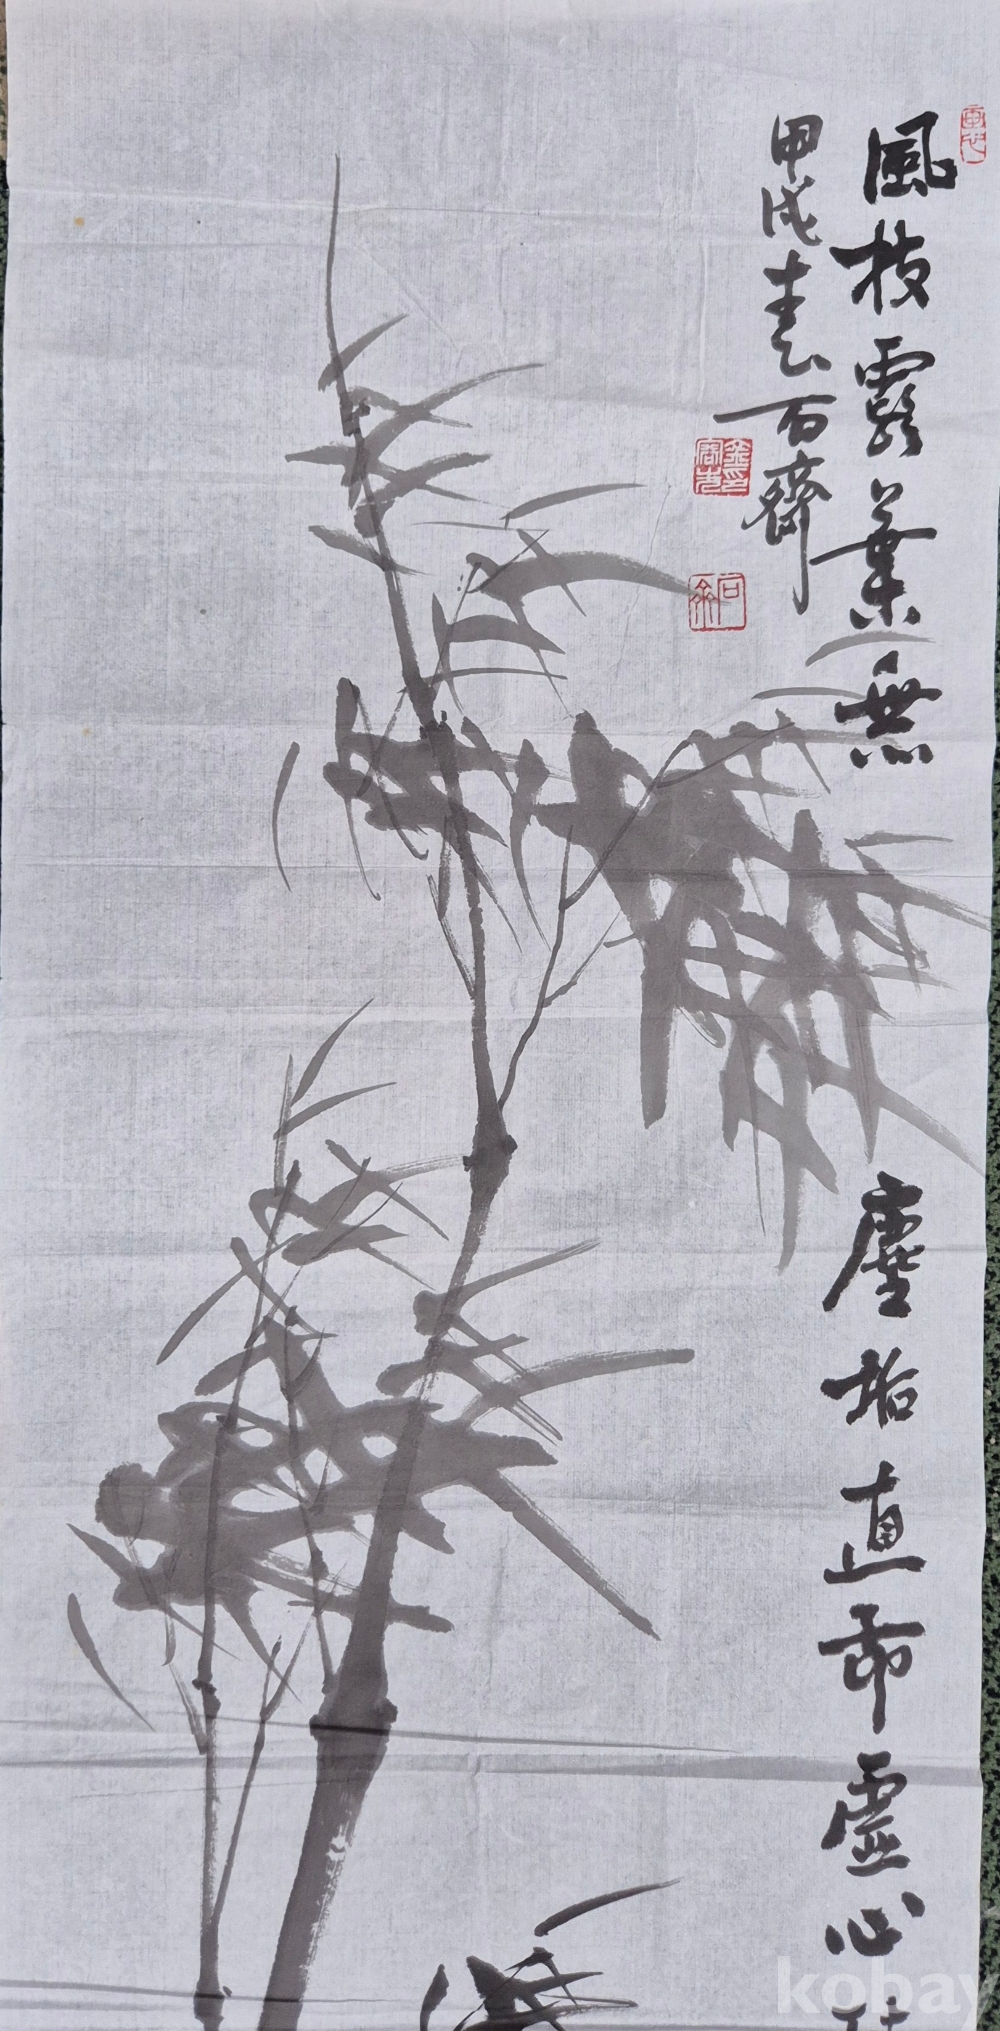 風枝露葉無塵垢直節虛心
甲戌春石齋
kobay